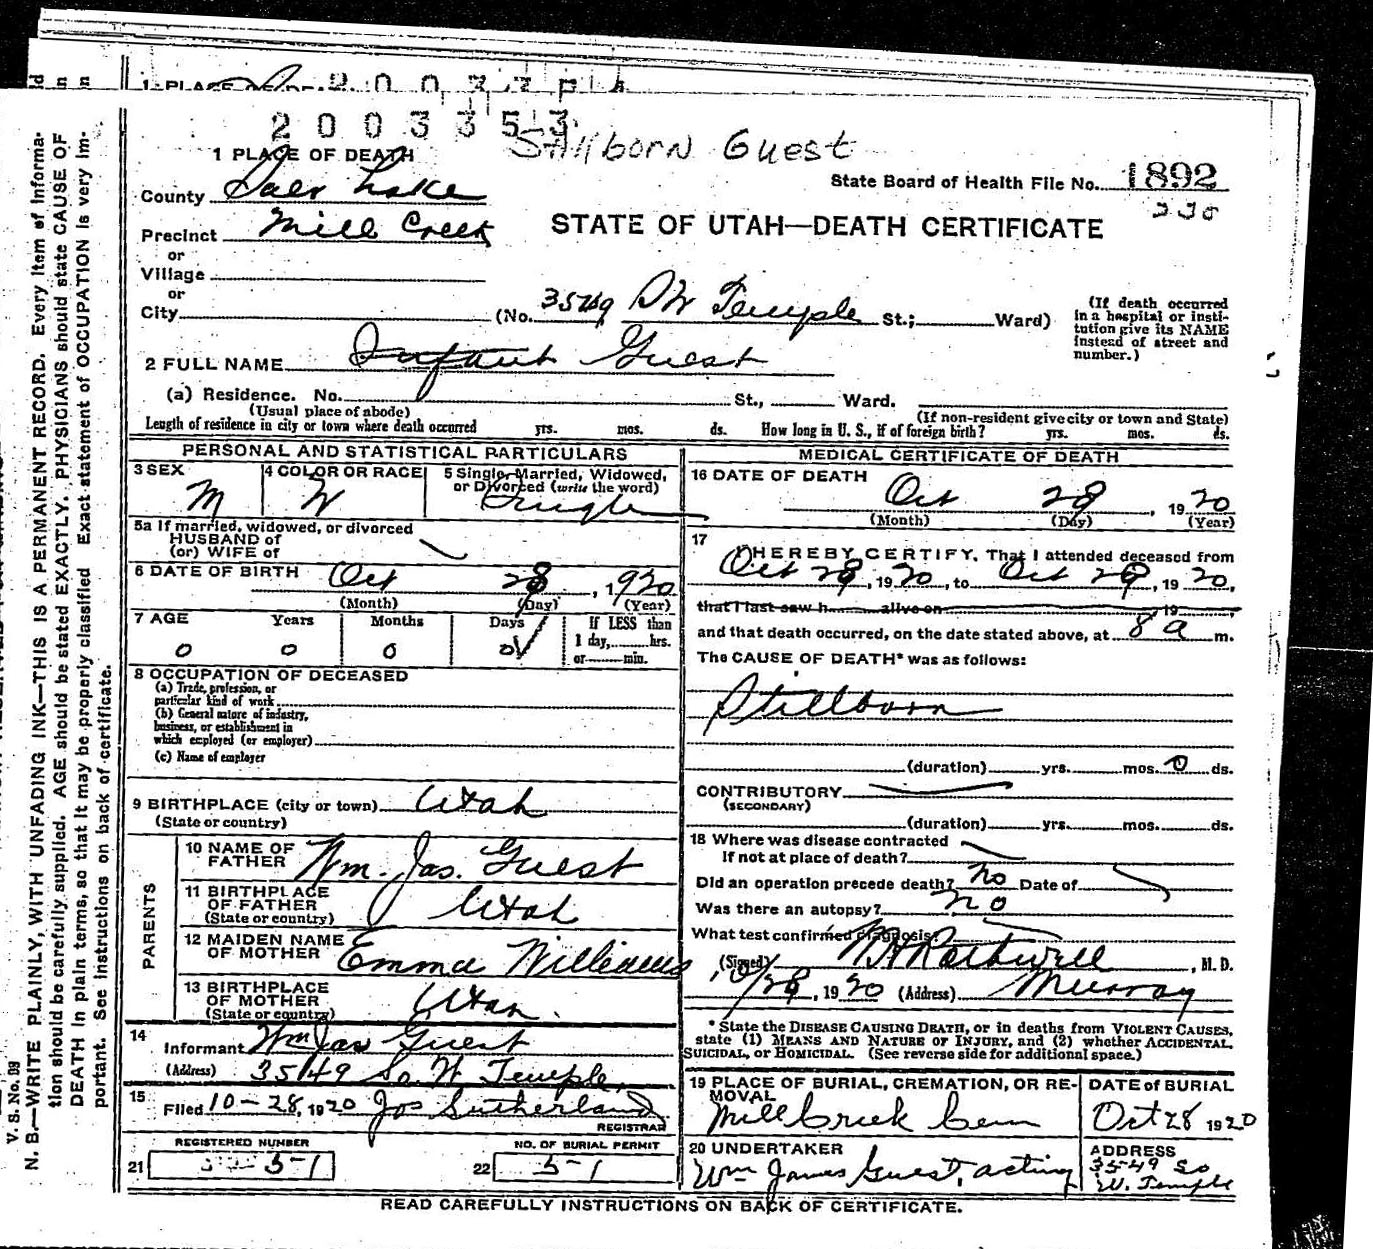 2003353
Stillborn Guest
1 PLACE OF DEATH
County Salt Lake
State Board of Health File No. 1892
Precinct Mill Creek
STATE OF UTAH—DEATH CERTIFICATE
or
Village
or
City (No. 3549 So W Temple St.; Ward)
(If death occurred in a hospital or insti-
tution give its NAME
instead of street and
number.)
2 FULL NAME Infant Guest
(a) Residence. No. St., Ward.
(Usual place of abode) (If non-resident give city or town and State)
Length of residence in city or town where death occurred yrs. mos. ds. How long in U. S., if of foreign birth? yrs. mos. ds.
PERSONAL AND STATISTICAL PARTICULARS
3 SEX 4 COLOR OR RACE 5 Single, Married, Widowed,
or Divorced (write the word)
M W Single
5a If married, widowed, or divorced
HUSBAND of
(or) WIFE of
6 DATE OF BIRTH Oct 28, 1920
(Month) (Day) (Year)
7 AGE Years Months Days If LESS than
1 day, hrs.
or min.
0 0 0 0
8 OCCUPATION OF DECEASED
(a) Trade, profession, or
particular kind of work
(b) General nature of industry,
business, or establishment in
which employed (or employer)
(c) Name of employer
9 BIRTHPLACE (city or town) Utah
(State or country)
PARENTS
10 NAME OF
FATHER Wm. Jas. Guest
11 BIRTHPLACE
OF FATHER
(State or country) Utah
12 MAIDEN NAME
OF MOTHER Emma Williams
13 BIRTHPLACE
OF MOTHER
(State or country) Utah.
14
Informant Wm Jas Guest
(Address) 3549 So. W Temple,
15
Filed 10-28, 1920 Jos Sutherland
REGISTRAR
REGISTERED NUMBER NO. OF BURIAL PERMIT
21 51 22 51
MEDICAL CERTIFICATE OF DEATH
16 DATE OF DEATH
Oct 28, 1920
(Month) (Day) (Year)
17
I HEREBY CERTIFY, That I attended deceased from
Oct 28, 1920, to Oct 28, 1920,
that I last saw h alive on , 19 ,
and that death occurred, on the date stated above, at 8 a m.
The CAUSE OF DEATH* was as follows:
Stillborn
(duration) yrs. mos. 0 ds.
CONTRIBUTORY
(SECONDARY)
(duration) yrs. mos. ds.
18 Where was disease contracted
If not at place of death?
Did an operation precede death? no Date of
Was there an autopsy? no
What test confirmed diagnosis?
(Signed) Rothwell, M. D.
10/28, 1920 (Address) Murray
* State the DISEASE CAUSING DEATH, or in deaths from VIOLENT CAUSES,
state (1) MEANS AND NATURE OF INJURY, and (2) whether ACCIDENTAL,
SUICIDAL, or HOMICIDAL. (See reverse side for additional space.)
19 PLACE OF BURIAL, CREMATION, OR RE-
MOVAL
Millcrick Cem
DATE of BURIAL
Oct 28 1920
20 UNDERTAKER
Wm James Guest, acting
ADDRESS
3549 So
W. Temple
READ CAREFULLY INSTRUCTIONS ON BACK OF CERTIFICATE.
V. S. No. D9
N. B.—WRITE PLAINLY, WITH UNFADING INK—THIS IS A PERMANENT RECORD. Every item of Informa-
tion should be carefully supplied. AGE should be stated EXACTLY. PHYSICIANS should state CAUSE OF
DEATH in plain terms, so that it may be properly classified. Exact statement of OCCUPATION is very im-
portant. See instructions on back of certificate.